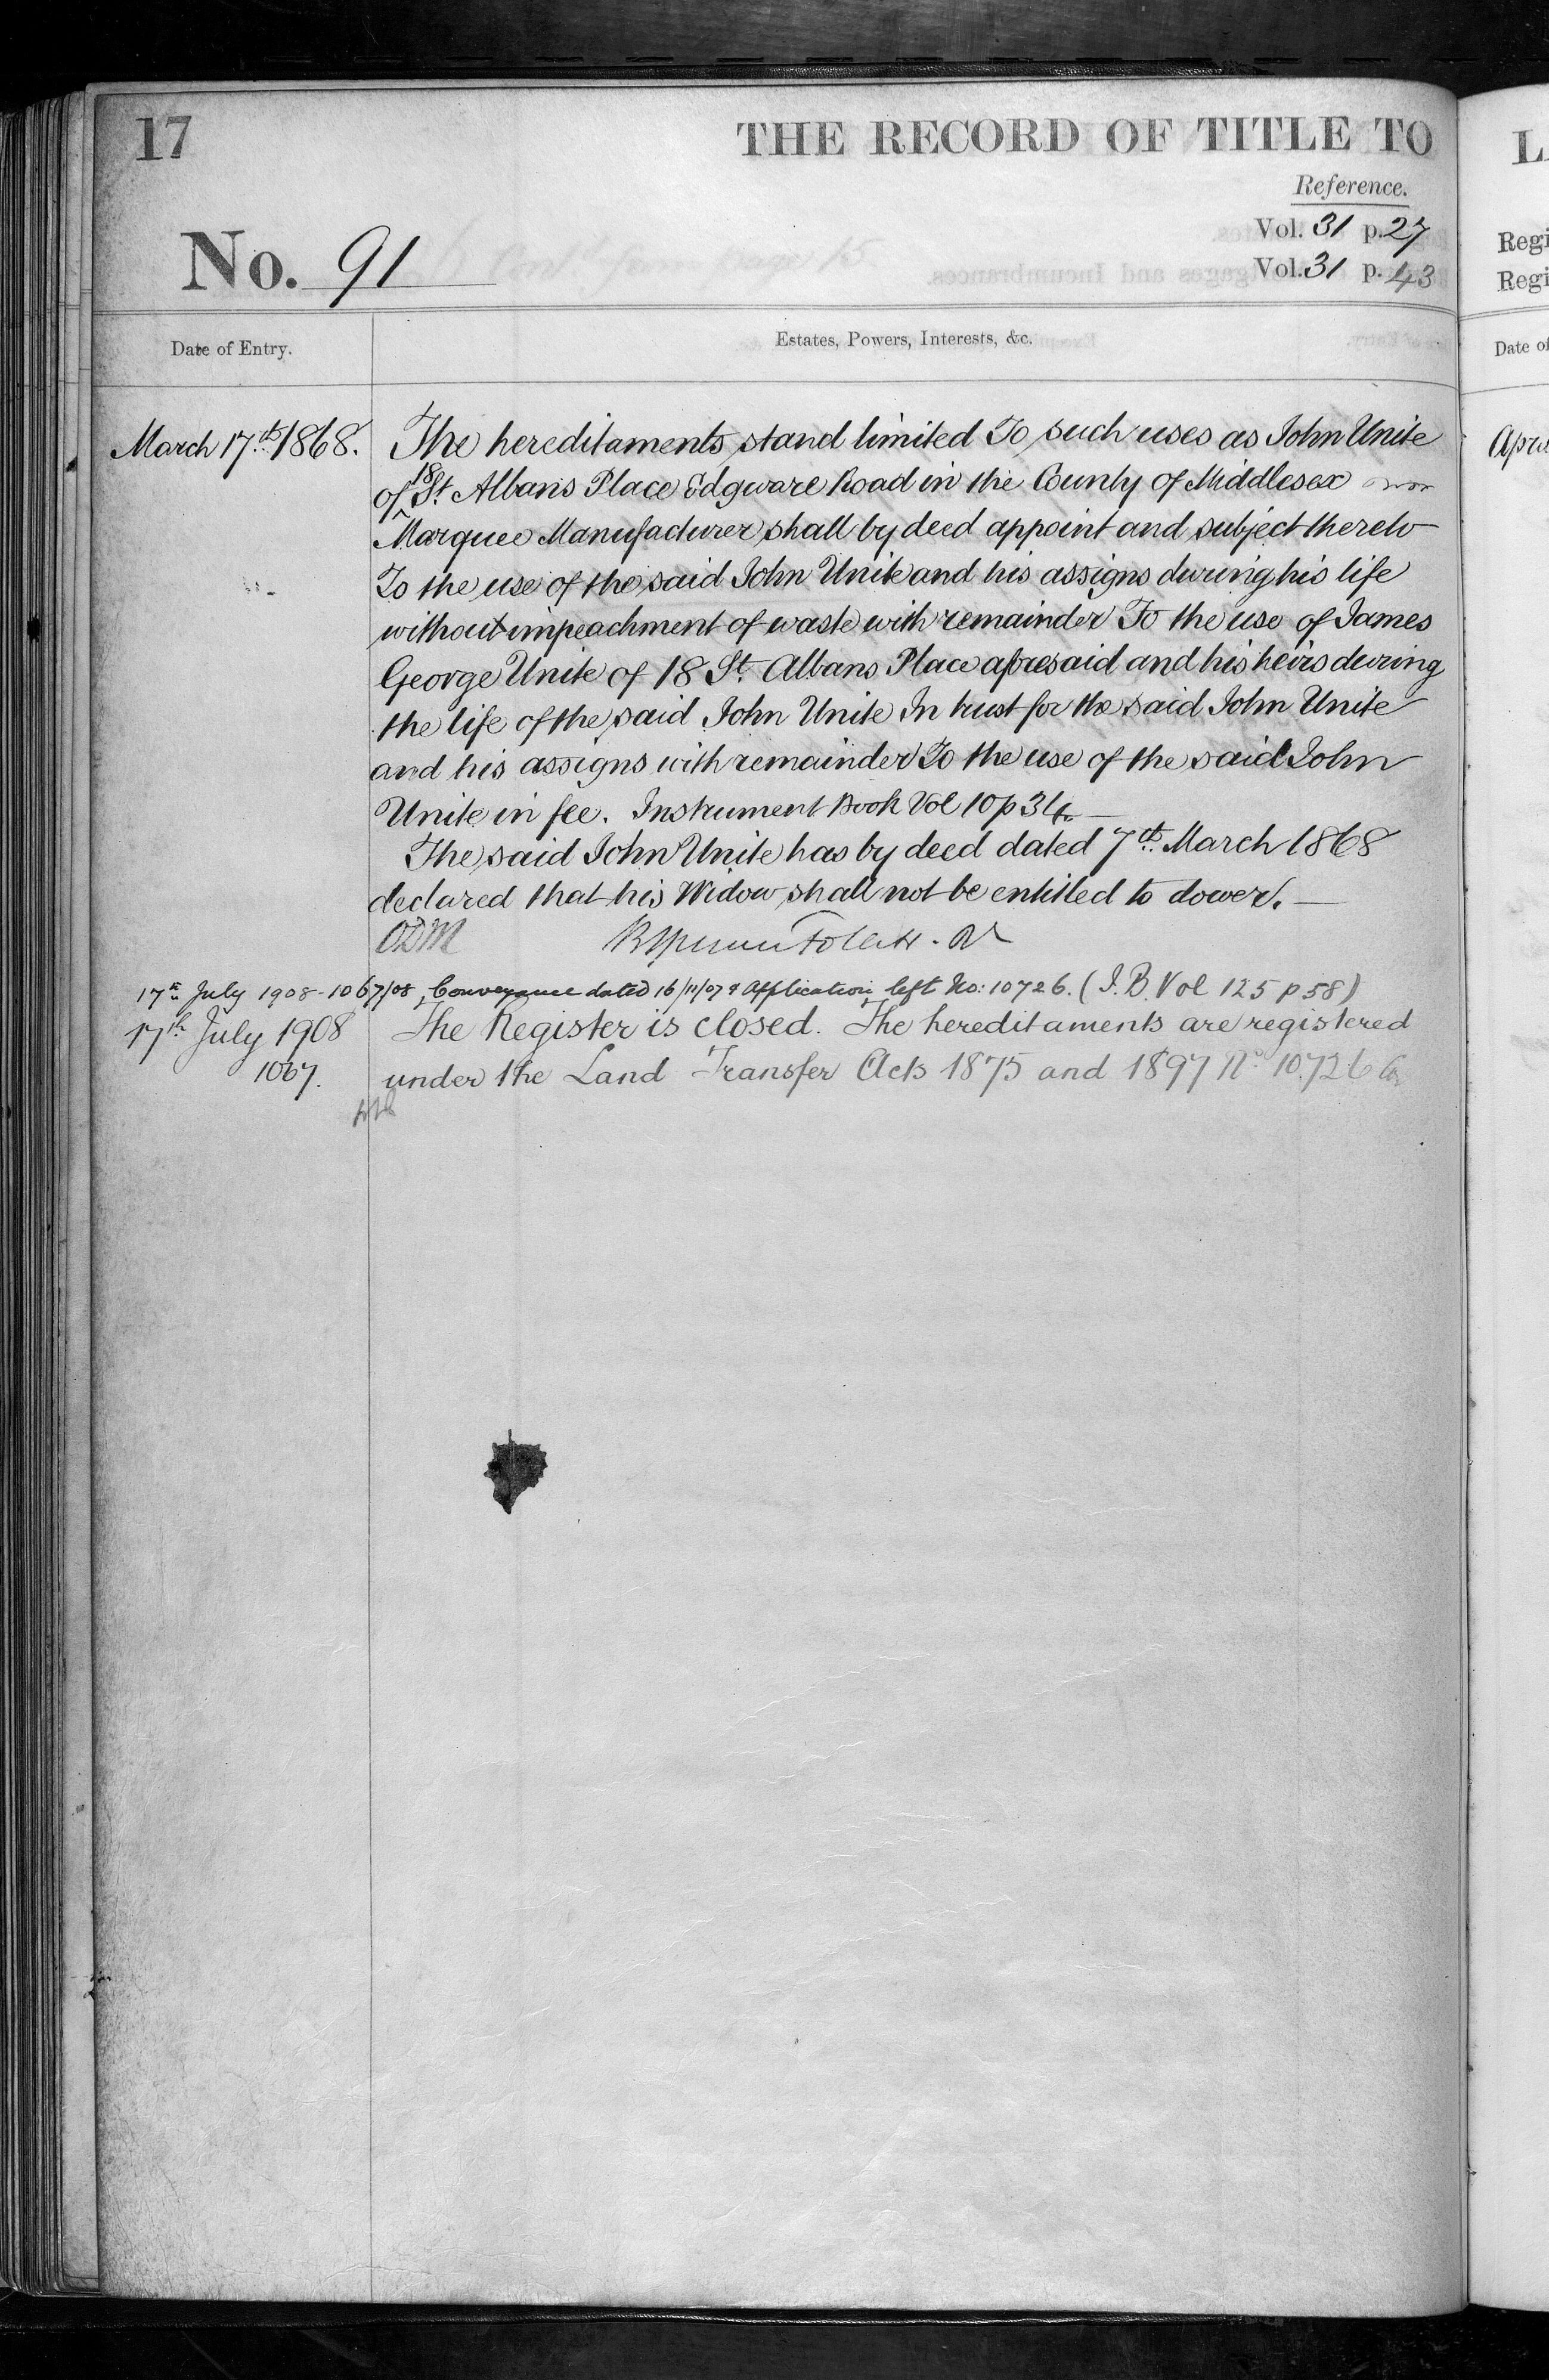 17
THE RECORD OF TITLE TO
Reference.
Vol. 31 p. 27
No. 91
Vol. 31 p. 43
Date of Entry.
Estates, Powers, Interests, &c.
March 17th 1868.
The hereditaments stand limited To such uses as John Unite
of 18 St. Albans Place Edgware Road in the County of Middlesex
Marquee Manufacturer shall by deed appoint and subject thereto
To the use of the said John Unite and his assigns during his life
without impeachment of waste with remainder To the use of James
George Unite of 18 St. Albans Place aforesaid and his heirs during
the life of the said John Unite In trust for the said John Unite
and his assigns with remainder To the use of the said John
Unite in fee. Instrument Book Vol 10 p 34.
The said John Unite has by deed dated 7th March 1868
declared that his Widow shall not be entitled to dower.
ODM
17th July 1908 - 1067/08, Conveyance dated 16/11/07 & Application left No: 10726. (I.B. Vol 125 p 58)
17th July 1908
1067.
The Register is closed. The hereditaments are registered
under the Land Transfer Acts 1875 and 1897 No. 10726
L
Regi
Regi
Date of